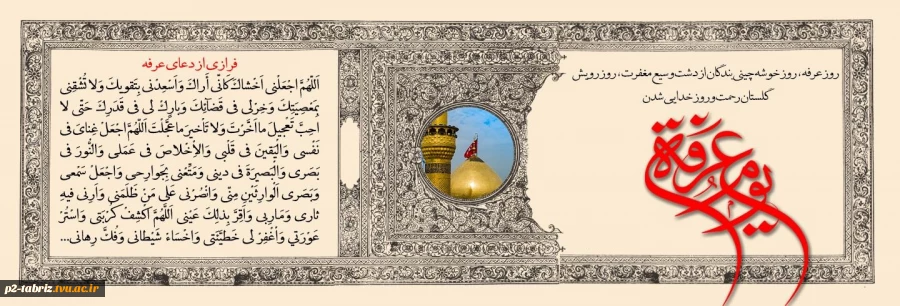 روز عرفه، روز خوشه چینی بندگان از دشت وسیع مغفرت، روز رویش
گلستان رحمت و روز خدایی شدن
یوم عرفة
فرازی از دعای عرفه
اَللّهُمَّ اجْعَلْنى اَخْشاكَ كَاَنّى أراكَ وَاَسْعِدْنى بِتَقويكَ وَلا تُشْقِنى
بِمَعْصِيَتِكَ وَخِرْلى فى قَضآئِكَ وَبارِكْ لى فى قَدَرِكَ حَتّى لا
اُحِبَّ تَعْجيلَ ما اَخَّرْتَ وَلا تَاْخيرَ ما عَجَّلْتَ اَللّهُمَّ اجْعَلْ غِناىَ فى
نَفْسى وَالْيَقينَ فى قَلْبى وَالاِْخْلاصَ فى عَمَلى وَالنُّورَ فى
بَصَرى وَالْبَصيرَةَ فى دينى وَمَتِّعْنى بِجَوارِحى وَاجْعَلْ سَمْعى
وَبَصَرى اَلْوارِثَيْنِ مِنّى وَانْصُرْنى عَلى مَنْ ظَلَمَنى وَاَرِنى فيهِ
ثارى وَمَاربى وَاَقِرَّ بِذلِكَ عَيْنى اَللَّهُمَّ اكْشِفْ كُرْبَتى وَاسْتُرْ
عَوْرَتي وَاْغْفِرْ لى خَطيَّئَتى وَاخْسَاءْ شَيْطانى وَفُكَّ رِهانى...
p2-tabriz.tvu.ac.ir